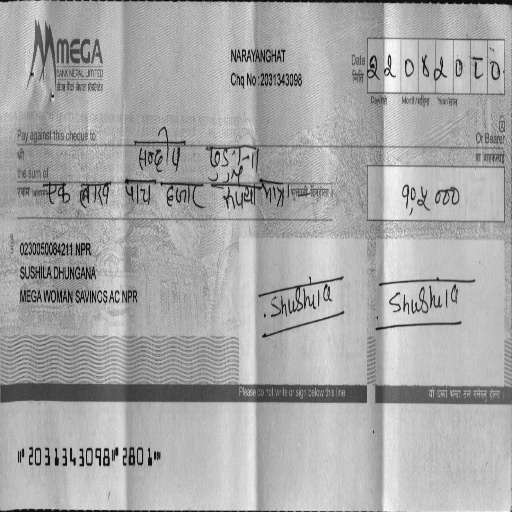 MEGA
BANK NEPAL LIMITED
मेगा बैंक नेपाल लिमिटेड
NARAYANGHAT
Chq No :2031343098
Date
मिति
Day/गते Month/महिना Year/साल
Pay against this cheque to
श्री
Or Bearer
the sum of
एक लाख पाच हजार रुपैया मात्र
0230050084211 NPR
SUSHILA DHUNGANA
MEGA WOMAN SAVINGS AC NPR
Shushila
Shushila
Please do not write or sign below this line
⑈2031343098⑈2801⑈